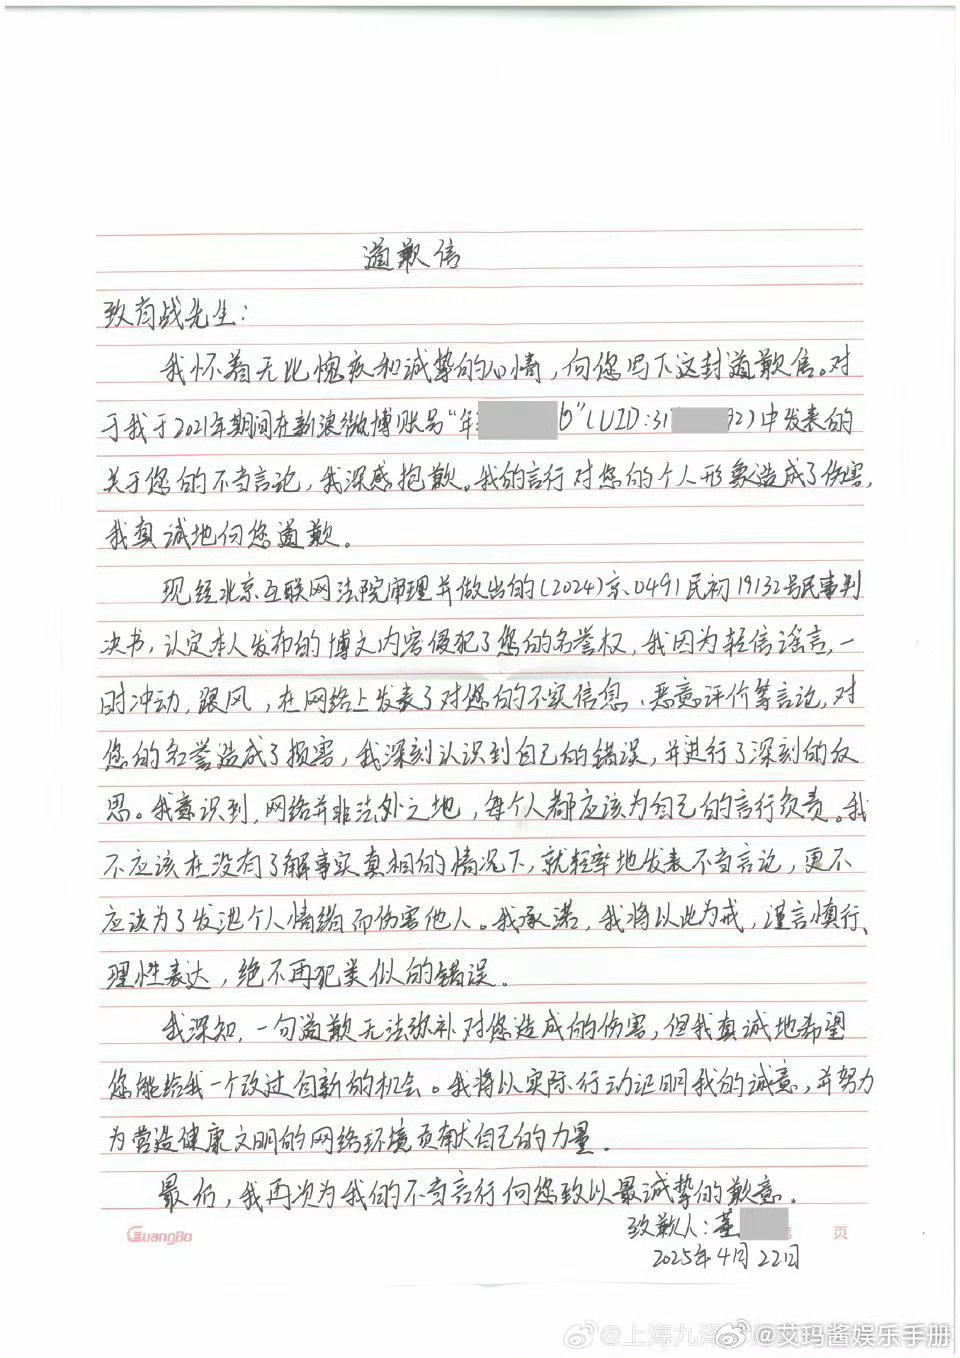 道歉信
致肖战先生：
我怀着无比愧疚和诚挚的心情，向您写下这封道歉信。对
于我于2021年期间在新浪微博账号“年 b”（UID：31 92）中发表的
关于您的不当言论，我深感抱歉。我的言行对您的个人形象造成了伤害，
我真诚地向您道歉。
现经北京互联网法院审理并做出的（2024）京0491民初19132号民事判
决书，认定本人发布的博文内容侵犯了您的名誉权，我因为轻信谣言，一
时冲动，跟风，在网络上发表了对您的不实信息、恶意评价等言论，对
您的名誉造成了损害，我深刻认识到自己的错误，并进行了深刻的反
思。我意识到，网络并非法外之地，每个人都应该为自己的言行负责。我
不应该在没有了解事实真相的情况下，就轻率地发表不当言论，更不
应该为了发泄个人情绪而伤害他人。我承诺，我将以此为戒，谨言慎行、
理性表达，绝不再犯类似的错误。
我深知，一句道歉无法弥补对您造成的伤害，但我真诚地希望
您能给我一个改过自新的机会。我将以实际行动证明我的诚意，并努力
为营造健康文明的网络环境贡献自己的力量。
最后，我再次为我的不当言行向您致以最诚挚的歉意。
致歉人：董
GuangBo 页
2025年4月22日
@上海九泽 @艾玛酱娱乐手册